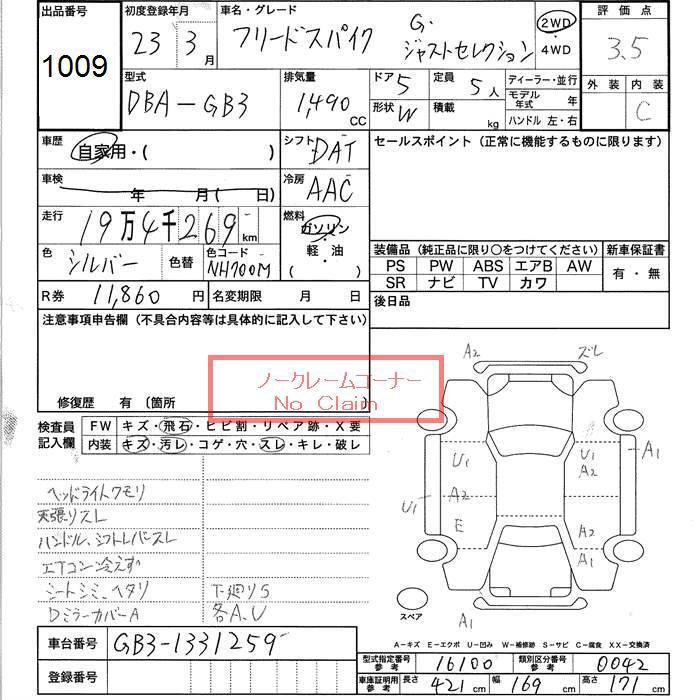 出品番号 1009
初度登録年月 23 3月
車名・グレード フリードスパイク G. ジャストセレクション
2WD ・ 4WD
評価点 3.5
外装 内装 C
型式 DBA-GB3
排気量 1,490 CC
ドア 5 形状 W
定員 5人 積載 kg
ディーラー・並行
モデル年式 年
ハンドル 左・右
車歴 自家用・( )
シフト DAT
セールスポイント (正常に機能するものに限ります)
車検 年 月( 日)
冷房 AAC
走行 19万4千269 km
燃料 ガソリン・軽油 ( )
色 シルバー 色替 色コード NH700M
装備品 (純正品に限り○をつけてください) 新車保証書
PS PW ABS エアB AW 有・無
SR ナビ TV カワ
R券 11,860 円 名変期限 月 日
後日品
注意事項申告欄 (不具合内容等は具体的に記入して下さい)
ノークレームコーナー
No Claim
修復歴 有 〔箇所 〕
検査員記入欄
FW キズ・飛石・ヒビ割・リペア跡・X要
内装 キズ・汚レ・コゲ・穴・スレ・キレ・破レ
ヘッドライトクモリ
天張リスレ
ハンドル、シフトレバースレ
エアコン冷えず
シートシミ、ヘタリ 下廻りS
Dミラーカバー A 各A、U
A2 ズレ
U1 U1 A2 A1
U1 A2
E A2
A1
スペア A1
A-キズ E-エクボ U-凹み W-補修跡 S-サビ C-腐食 XX-交換済
車台番号 GB3-1331259
登録番号
型式指定番号 参考 16100 類別区分番号 参考 0042
車庫証明用 参考 長さ 421 cm 幅 169 cm 高さ 171 cm